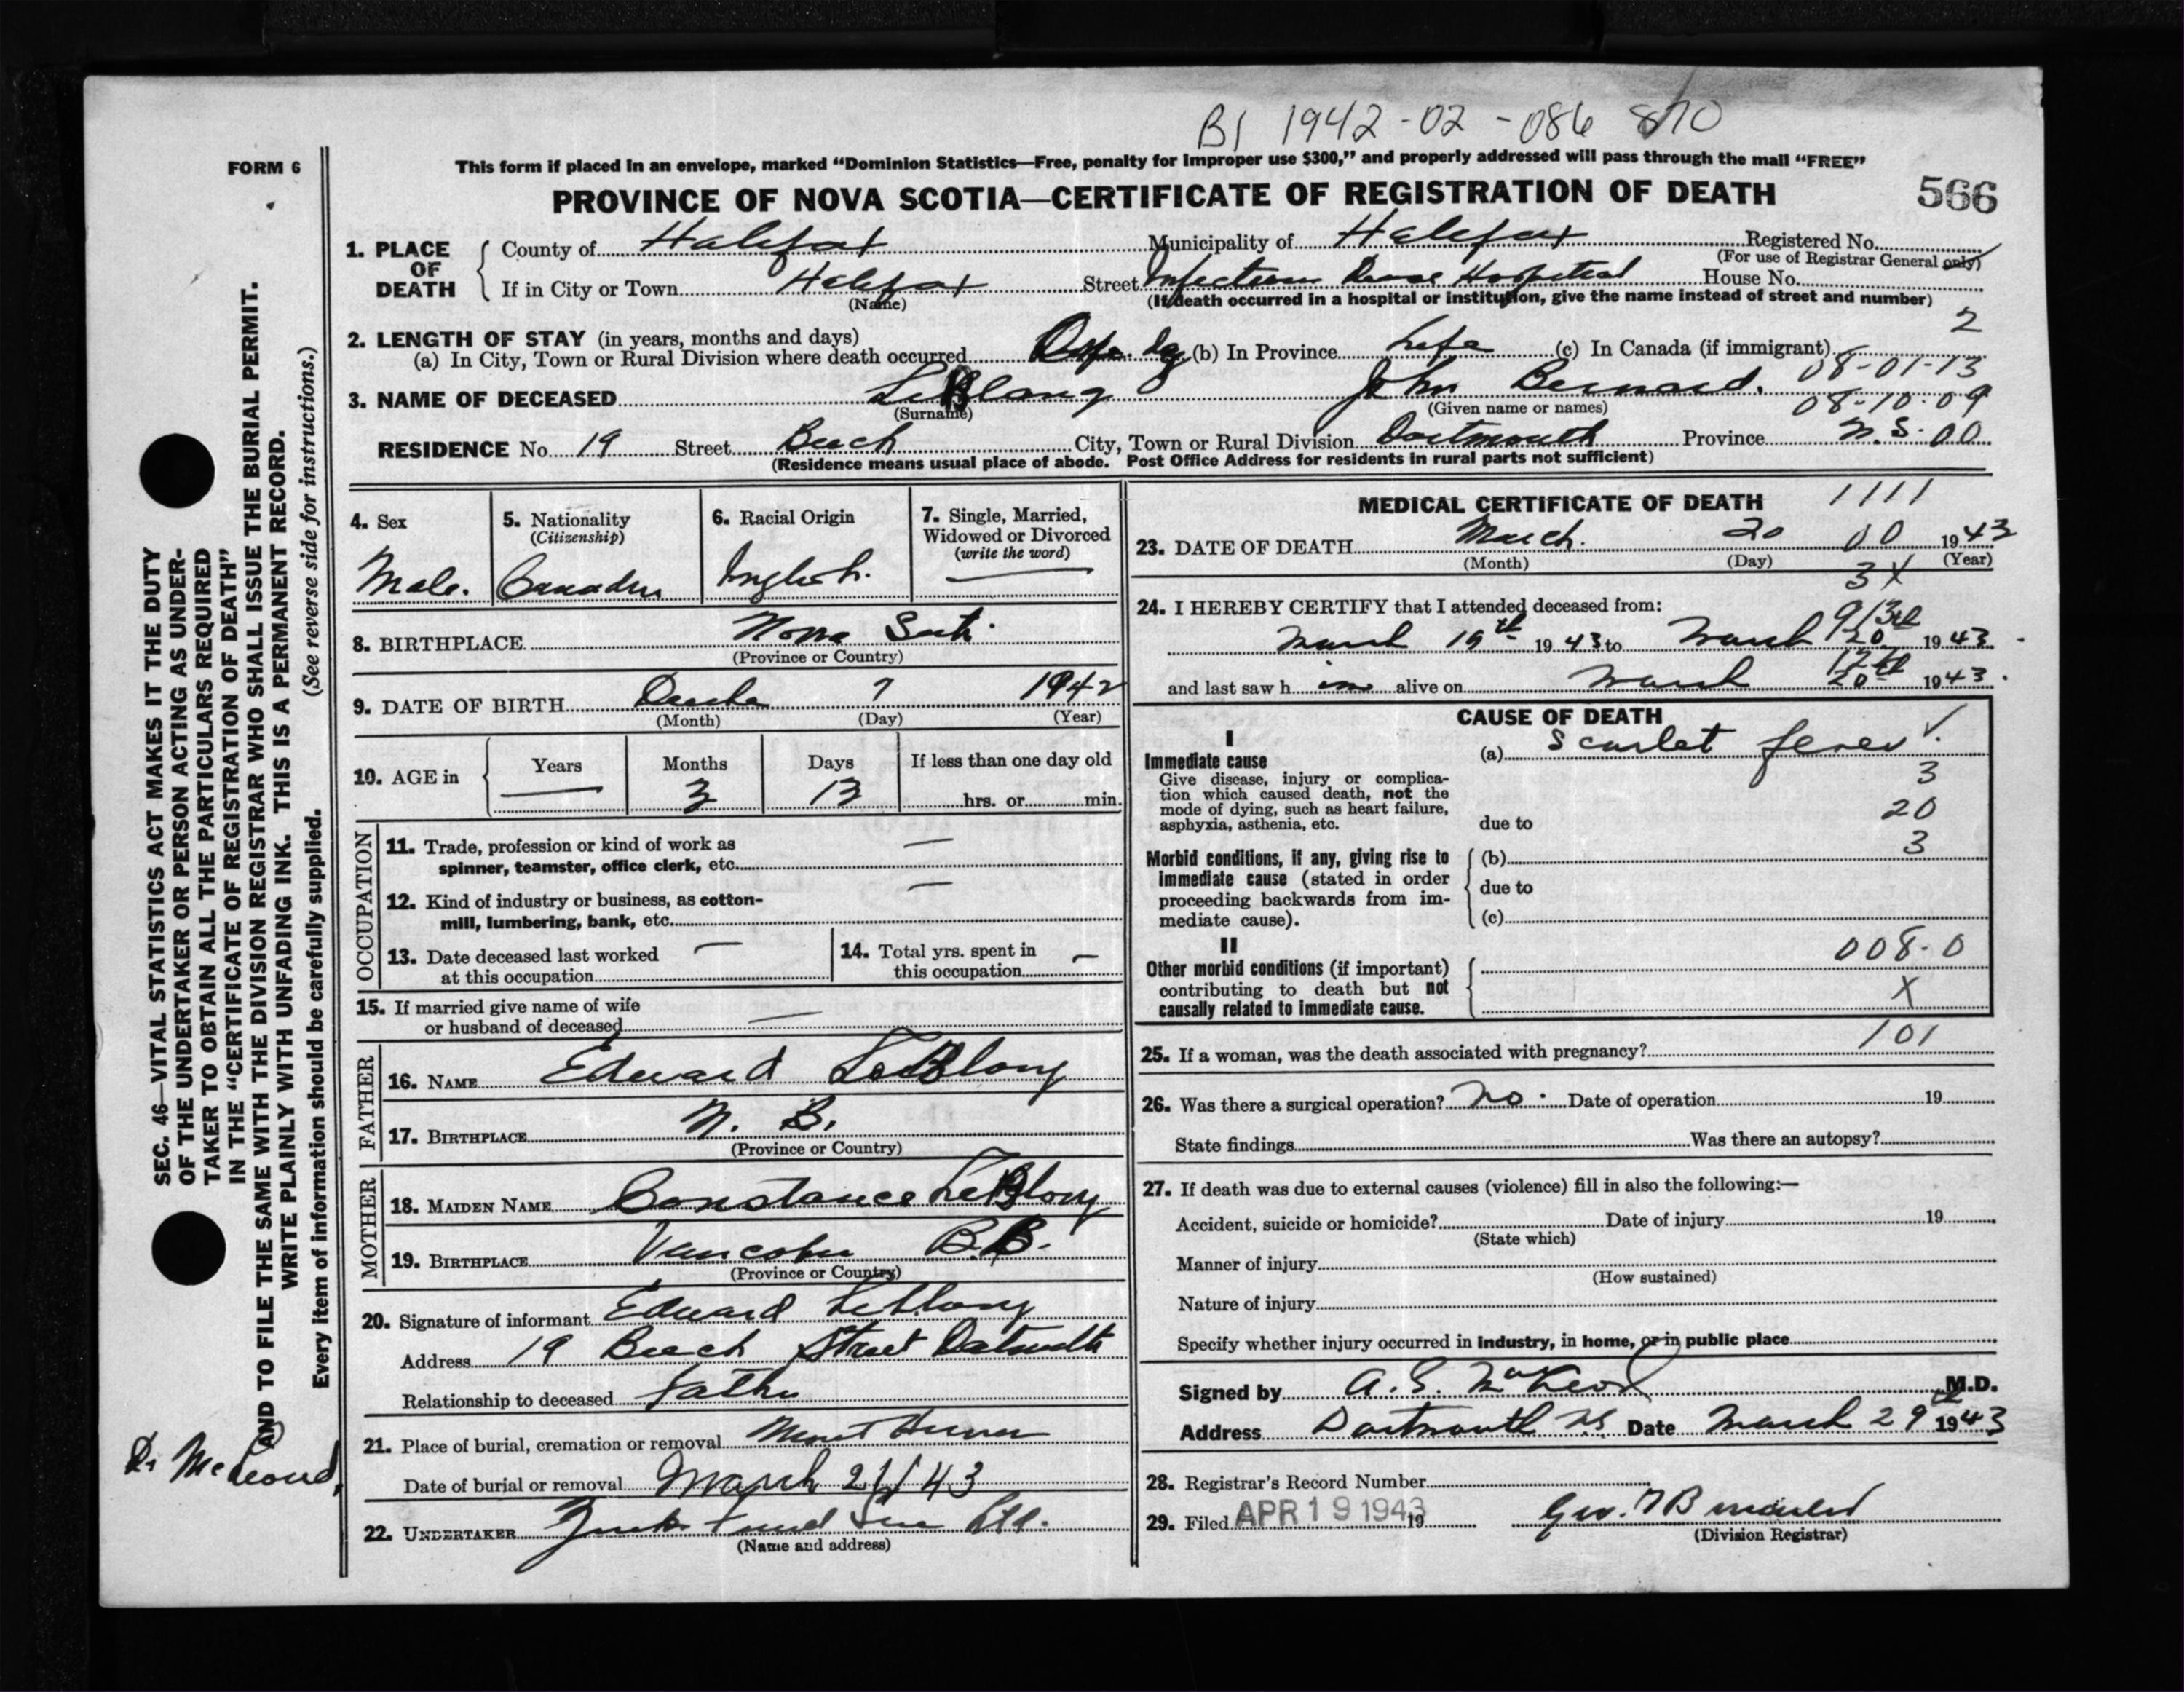 B1 1942-02-086 870
FORM 6
This form if placed in an envelope, marked “Dominion Statistics—Free, penalty for improper use $300,” and properly addressed will pass through the mail “FREE”
PROVINCE OF NOVA SCOTIA—CERTIFICATE OF REGISTRATION OF DEATH
566
1. PLACE OF DEATH
County of Halifax Municipality of Halifax Registered No.
(For use of Registrar General only)
If in City or Town Halifax Street Hospital House No.
(Name) (If death occurred in a hospital or institution, give the name instead of street and number)
2
2. LENGTH OF STAY (in years, months and days)
(a) In City, Town or Rural Division where death occurred (b) In Province Life (c) In Canada (if immigrant)
08-01-13
3. NAME OF DECEASED LeBlanc John Bernard.
(Surname) (Given name or names)
08-10-09
RESIDENCE No. 19 Street Beech City, Town or Rural Division Dartmouth Province N.S. 00
(Residence means usual place of abode. Post Office Address for residents in rural parts not sufficient)
4. Sex
Male.
5. Nationality
(Citizenship)
6. Racial Origin
English.
7. Single, Married,
Widowed or Divorced
(write the word)
8. BIRTHPLACE Nova
(Province or Country)
9. DATE OF BIRTH 7 1942
(Month) (Day) (Year)
10. AGE in
Years Months Days If less than one day old
3 13 hrs. or min.
OCCUPATION
11. Trade, profession or kind of work as
spinner, teamster, office clerk, etc.
12. Kind of industry or business, as cotton-
mill, lumbering, bank, etc.
13. Date deceased last worked
at this occupation
14. Total yrs. spent in
this occupation
15. If married give name of wife
or husband of deceased
FATHER
16. NAME Edward LeBlanc
17. BIRTHPLACE N. B.
(Province or Country)
MOTHER
18. MAIDEN NAME Constance LeBlanc
19. BIRTHPLACE B.
(Province or Country)
20. Signature of informant Edward LeBlanc
Address 19 Beech Street
Relationship to deceased father
21. Place of burial, cremation or removal Mount
Date of burial or removal March 21/43
22. UNDERTAKER Ltd.
(Name and address)
MEDICAL CERTIFICATE OF DEATH
1111
23. DATE OF DEATH March. 20 00 1943
(Month) (Day) (Year)
3X
24. I HEREBY CERTIFY that I attended deceased from:
913
March 19th 1943 to March 20 1943
and last saw him alive on March 20th 1943.
CAUSE OF DEATH
I
Immediate cause
Give disease, injury or complica-
tion which caused death, not the
mode of dying, such as heart failure,
asphyxia, asthenia, etc.
(a) Scarlet fever
3
20
due to
3
Morbid conditions, if any, giving rise to
immediate cause (stated in order
proceeding backwards from im-
mediate cause).
(b)
due to
(c)
II
Other morbid conditions (if important)
contributing to death but not
causally related to immediate cause.
008-0
X
101
25. If a woman, was the death associated with pregnancy?
26. Was there a surgical operation? no. Date of operation 19
State findings Was there an autopsy?
27. If death was due to external causes (violence) fill in also the following:—
Accident, suicide or homicide? Date of injury 19
(State which)
Manner of injury
(How sustained)
Nature of injury
Specify whether injury occurred in industry, in home, or in public place
Signed by A. M.D.
Address Dartmouth N.S. Date March 29 1943
28. Registrar's Record Number
29. Filed APR 19 1943 19
(Division Registrar)
SEC. 46—VITAL STATISTICS ACT MAKES IT THE DUTY
OF THE UNDERTAKER OR PERSON ACTING AS UNDER-
TAKER TO OBTAIN ALL THE PARTICULARS REQUIRED
IN THE “CERTIFICATE OF REGISTRATION OF DEATH”
AND TO FILE THE SAME WITH THE DIVISION REGISTRAR WHO SHALL ISSUE THE BURIAL PERMIT.
WRITE PLAINLY WITH UNFADING INK. THIS IS A PERMANENT RECORD.
Every item of information should be carefully supplied. (See reverse side for instructions.)